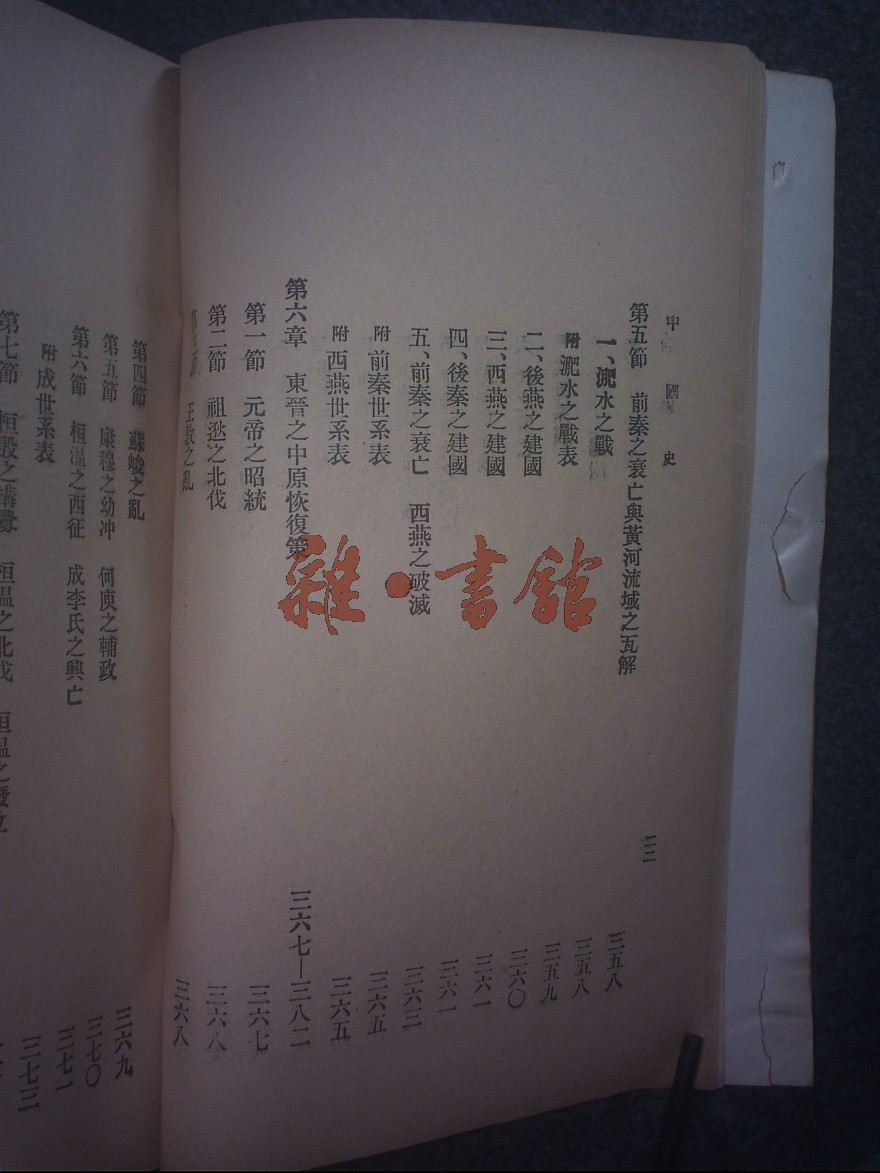 中國史
二二
第五節 前秦之衰亡與黃河流域之瓦解 三五八
一、淝水之戰 三五八
附 淝水之戰表 三五九
二、後燕之建國 三六〇
三、西燕之建國 三六一
四、後秦之建國 三六一
五、前秦之衰亡 西燕之破滅 三六三
附 前秦世系表 三六五
附 西燕世系表 三六五
第六章 東晉之中原恢復策 三六七—三八二
第一節 元帝之昭統 三六七
第二節 祖逖之北伐 三六八
王敦之亂 三六八
第四節 蘇峻之亂 三六九
第五節 康穆之幼冲 何庾之輔政 三七〇
第六節 桓溫之西征 成李氏之興亡 三七一
附 成世系表 三七三
第七節 桓殷之構釁 桓溫之北伐 桓溫之廢立
雜·書館